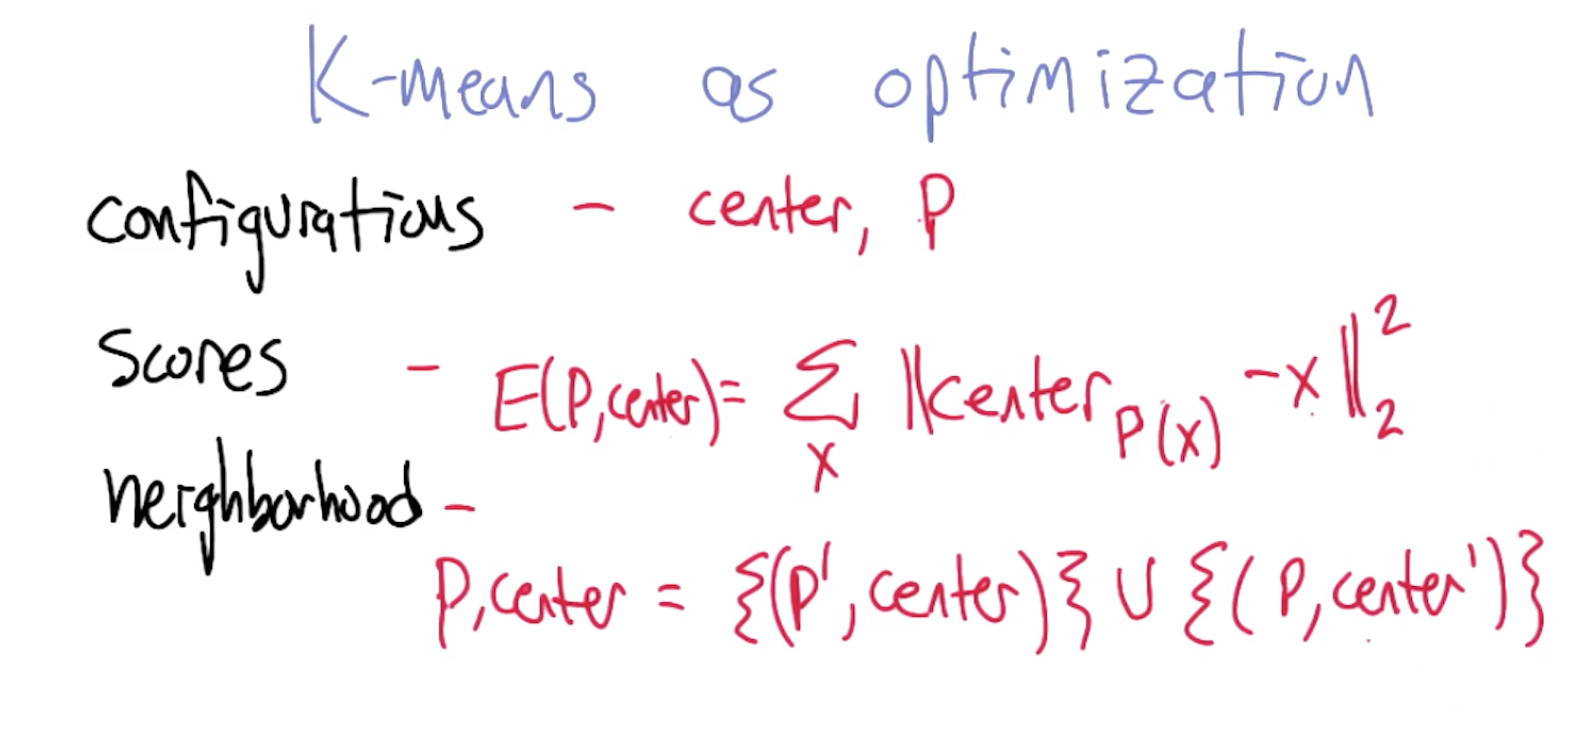 K-means as optimization
configurations - center, P
Scores - E(P,center)= ∑ₓ ||center_P(x) -x||₂²
neighborhood -
P,center = {(P', center)} ∪ {(P,center')}